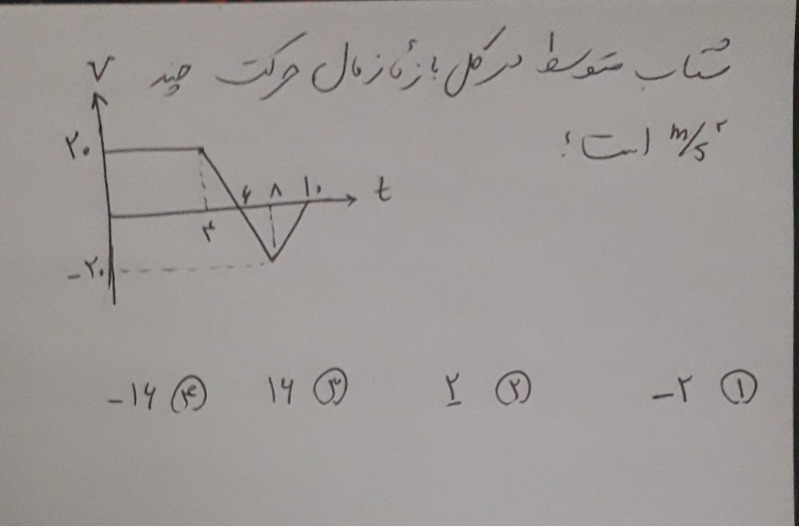 شتاب متوسط در کل بازهٔ زمان حرکت چند
m/s² است؟
V
۲۰
۴
۶
۸
۱۰
t
-۲۰
① -۲
② ۲
③ ۱۶
④ -۱۶